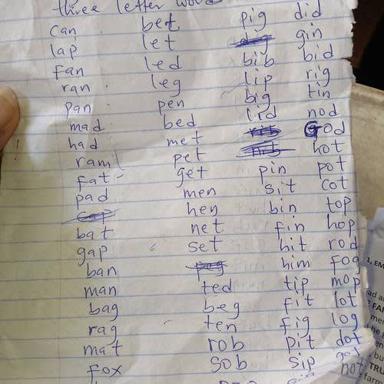 three letter word
can bet pig did
lap let gin
fan led bib bid
ran leg lip rig
pan pen big tin
mad bed lid nod
had met God
ram pet hot
fat get pin pot
pad men sit cot
hen bin top
bat net fin hop
gap set hit rod
ban him fog
man ted tip mop
bag beg fit lot
rag ten fig log
mat rob pit dot
fox sob sip got
not